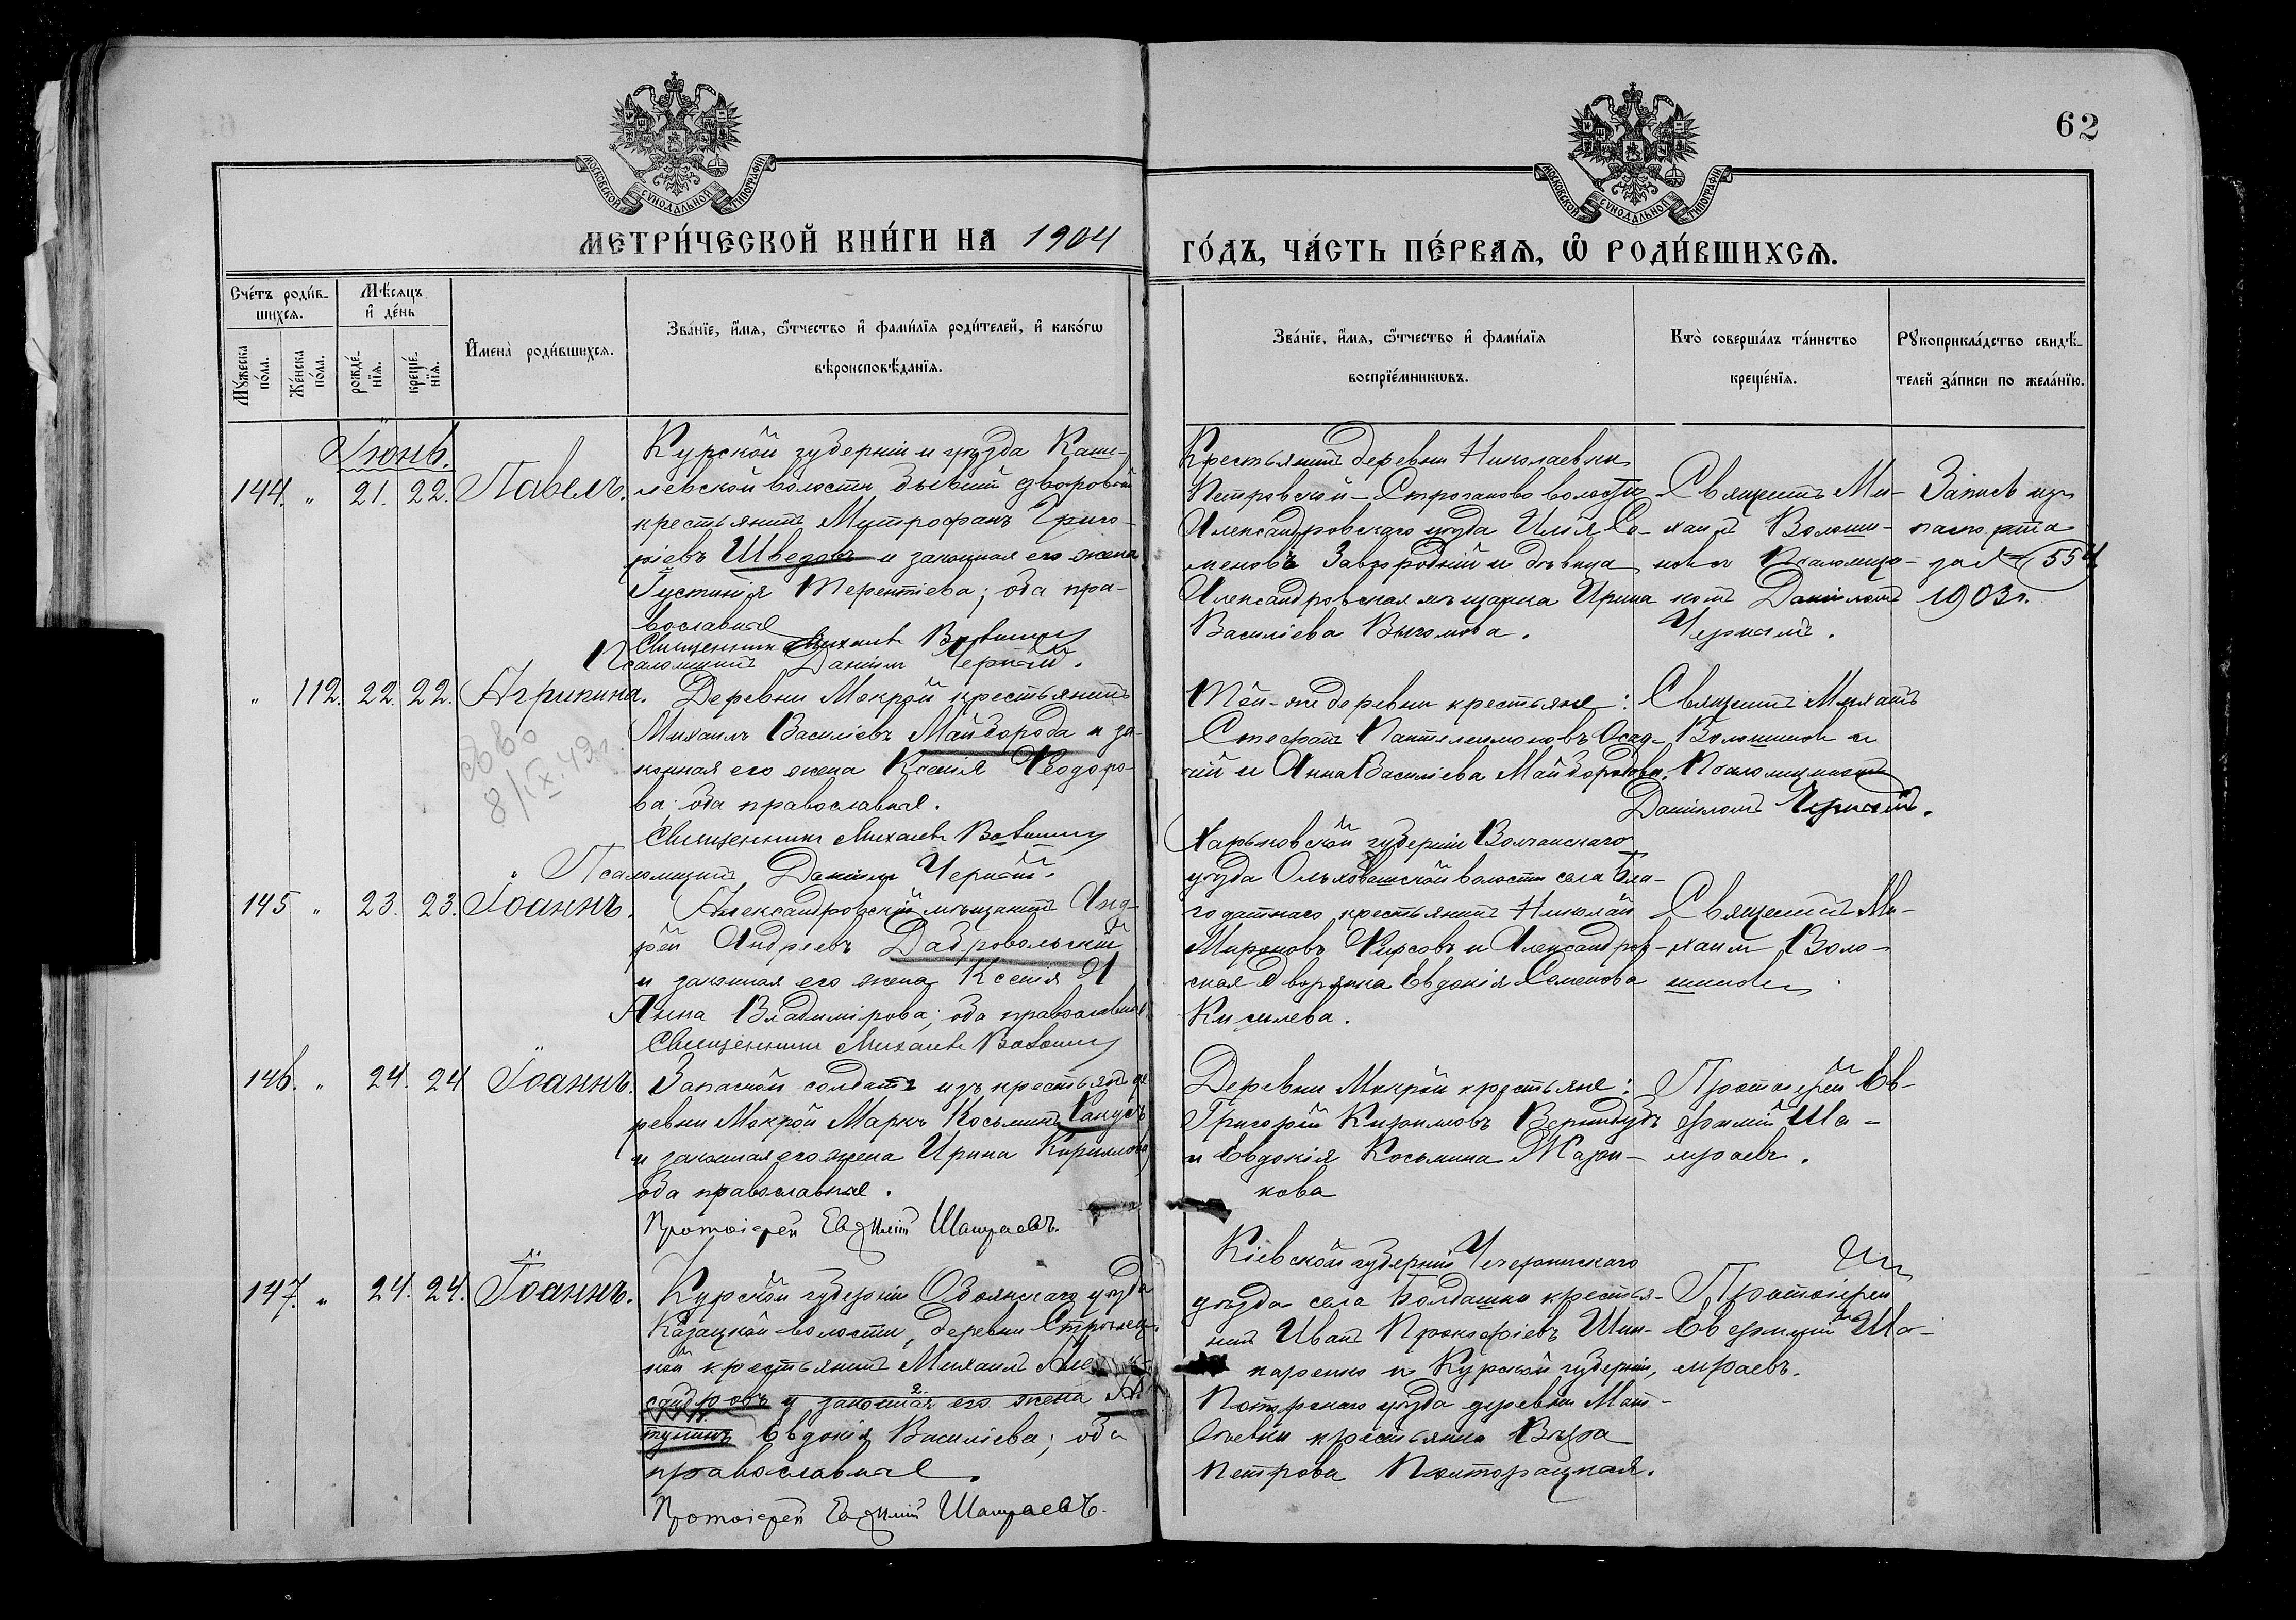 62
МОСКОВСКОЙ СѴНОДАЛЬНОЙ ТИПОГРАФІИ
МОСКОВСКОЙ СѴНОДАЛЬНОЙ ТИПОГРАФІИ
МЕТРИ́ЧЕСКОЙ КНИ́ГИ НА 1904
ГО́ДЪ, ЧА́СТЬ ПЕ́РВАѦ, Ѡ҆ РОДИ́ВШИХСѦ.
Сче́тъ роди́в-
шихсѧ.
Мѣ́сѧцъ
и҆ де́нь
Мꙋ́жеска
по́ла.
Же́нска
по́ла.
рожде́-
нїѧ.
креще́-
нїѧ.
И҆мена̀ роди́вшихсѧ.
Зва́нїе, и҆́мѧ, ѻ҆́тчество и҆ фами́лїѧ роди́телей, и҆ како́гѡ
вѣроисповѣ́данїѧ.
Зва́нїе, и҆́мѧ, ѻ҆́тчество и҆ фами́лїѧ
воспрїе́мникѡвъ.
Кто̀ соверша́лъ та́инство
креще́нїѧ.
Рꙋкоприкла́дство свидѣ́-
телей за́писи по жела́нїю.
Іюнь.
144. " 21. 22. Павелъ.
Курской губерніи и уѣзда Каше-
левской волости бывшій дворовой
крестьянинъ Митрофанъ Григо-
ріевъ Шведовъ и законная его жена
Іустинія Терентіева; оба пра-
вославные
Священникъ Михаилъ Волошинъ
Псаломщикъ Даніилъ Чернай.
Крестьянинъ деревни Николаевки
Петровской-Строганово волости
Александровскаго уѣзда Илія Се-
меновъ Завгородній и дѣвица
Александровская мѣщанка Ирина
Василіева
Священникъ Ми-
хаилъ Волоши-
новъ и Псаломщи-
комъ Даніиломъ
Запись изъ
паспорта
за № 554
1903 г.
" 112. 22. 22. Агрипина.
Деревни Мокрой крестьянинъ
Михаилъ Василіевъ Майборода и за-
конная его жена Ксенія Ѳеодоро-
ва оба православные.
Священникъ Михаилъ Волошинъ
Псаломщикъ Даніилъ Чернай.
8/IX.49г.
Той-же деревни крестьяне:
Стефанъ Пантелеимоновъ Осад-
чій и Анна Василіева Майбородова.
Священникъ Михаилъ
Волошинов и
Псаломщикомъ
Даніиломъ
145 " 23. 23. Іоаннъ.
Александровскій мѣщанинъ Анд-
рей Андреевъ Дабровольскій
и законная его жена Ксенія
Анна Владимірова; оба православные.
Священникъ Михаилъ Волошинъ
Харьковской губерніи Волчанскаго
уѣзда Ольховатской волости села Бла-
годатнаго крестьянинъ Николай
Мироновъ Фирсовъ и Александров-
ская дворянка Евдокія Семенова
Киселева.
Священникъ Ми-
хаилъ Воло-
шинов
146. " 24. 24 Іоаннъ.
Запасной солдатъ изъ крестьянъ де-
ревни Мокрой Маркъ Косьминъ
и законная его жена Ирина Кириллова
оба православные.
Протоіерей Евѳимій Шашраевъ.
Деревни Мокрой крестьяне:
Григорій Кириловъ Вернидубъ
и Евдокія Косьмина Жари-
кова
Протоіерей Ев-
фимій Ша-
147. " 24. 24. Іоаннъ.
Курской губерніи Обоянскаго уѣзда
Казацкой волости, деревни Стрѣлец-
кой крестьянинъ Михаилъ Алек-
сандровъ и законная его жена
Евдокія Василіева; оба
православные.
Протоіерей Евѳимій Шашраевъ.
Кіевской губерніи Чегеринскаго
уѣзда села Болдашки крестья-
нинъ Иванъ Прокофіевъ Шин-
каренко и Курской губерніи,
уѣзда деревни Мат-
веевки крестьянка Вѣра
Петрова Полторацкая.
Протоіерей
Евфимій Ша-